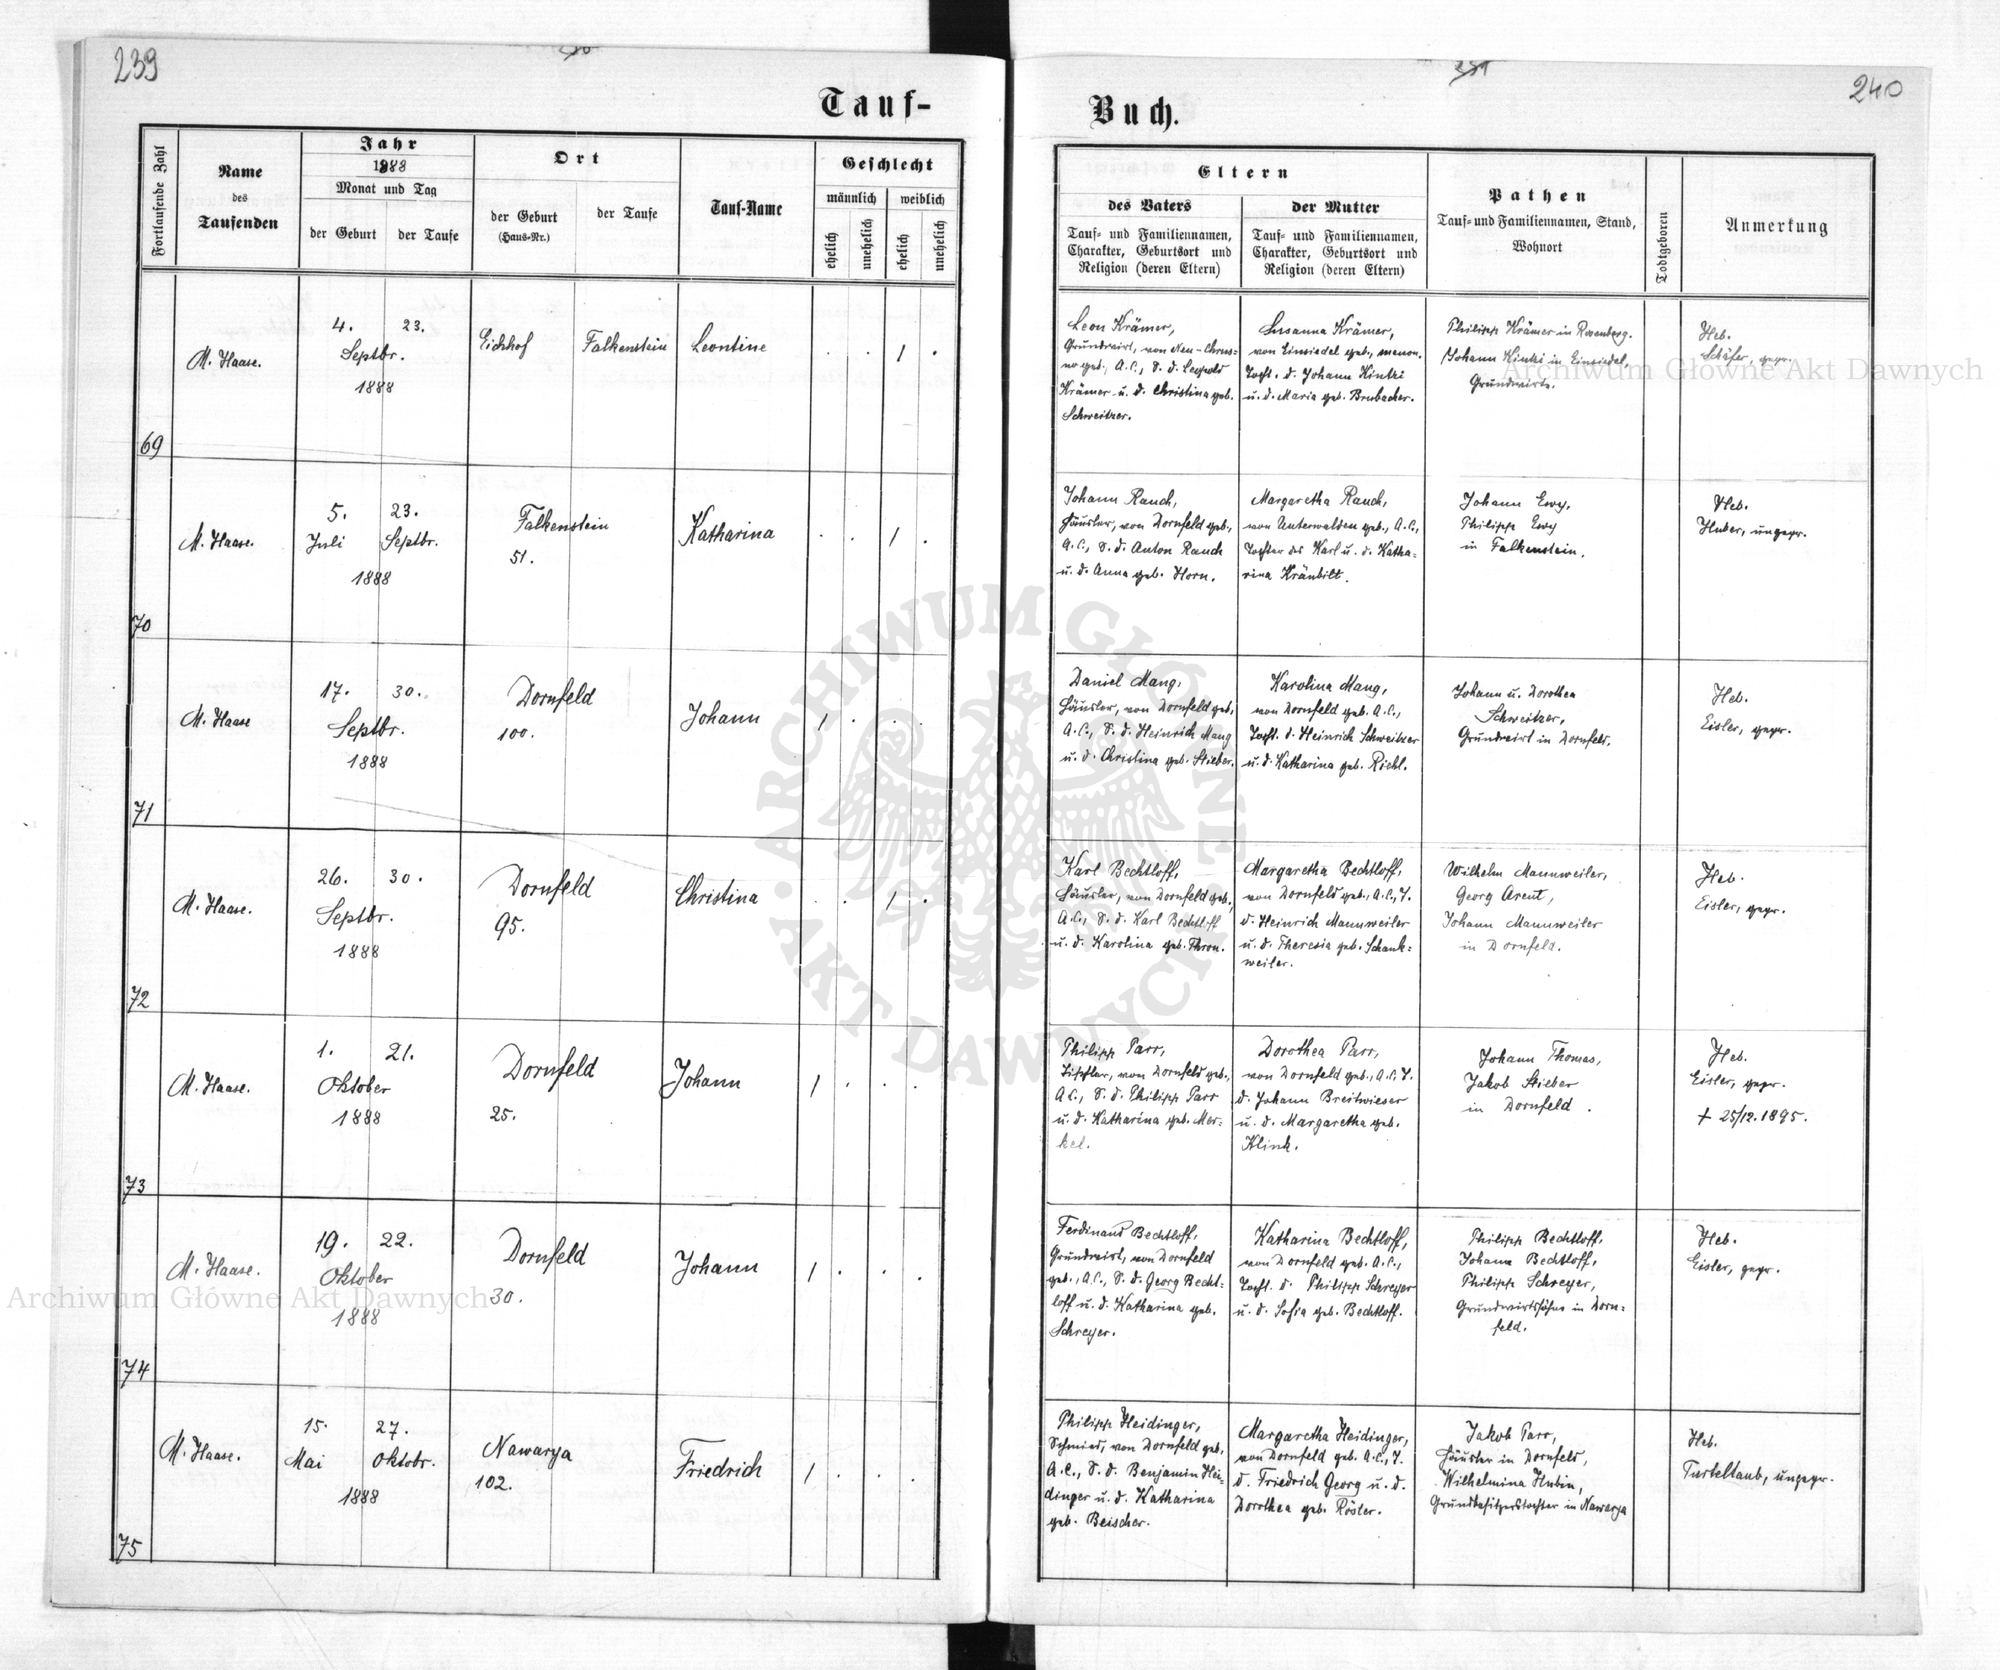 239
240
Tauf-
Buch.
Fortlaufende Zahl
Name
des
Taufenden
Jahr
1888
Monat und Tag
der Geburt
der Taufe
Ort
der Geburt
(Haus-Nr.)
der Taufe
Tauf-Name
Geschlecht
männlich
weiblich
ehelich
unehelich
ehelich
unehelich
Eltern
des Vaters
Tauf- und Familiennamen,
Charakter, Geburtsort und
Religion (deren Eltern)
der Mutter
Tauf- und Familiennamen,
Charakter, Geburtsort und
Religion (deren Eltern)
Pathen
Tauf- und Familiennamen, Stand,
Wohnort
Todtgeboren
Anmerkung
69
M. Haase.
4. 23.
Septbr.
1888
Eichhof
Falkenstein
Leontine
. . 1 .
Leon Krämer,
Grundwirt, von Neu-Chrus=
no geb., A.C., S. d. Leopold
Krämer u. d. Christina geb.
Schweitzer.
Susanna Krämer,
von Einsiedel geb., menon.
Tocht. d. Johann Kintzi
u. d. Maria geb. Brubacher.
Philipp Krämer in Rosenberg.
Johann Kintzi in Einsiedel,
Grundwirte.
Heb.
Schäfer, gepr.
70
M. Haase.
5. 23.
Juli Septbr.
1888
Falkenstein
51.
Katharina
. . 1 .
Johann Rauch,
Häusler, von Dornfeld geb.,
A.C., S. d. Anton Rauch
u. d. Anna geb. Horn.
Margaretha Rauch,
von Unterwalden geb., A.C.,
Tochter des Karl u. d. Katha=
rina Kränbilt.
Johann Ewy,
Philipp Ewy
in Falkenstein.
Heb.
Huber, ungepr.
71
M. Haase
17. 30.
Septbr.
1888
Dornfeld
100.
Johann
1 . . .
Daniel Mang,
Häusler, von Dornfeld geb.,
A.C., S. d. Heinrich Mang
u. d. Christina geb. Stieber.
Karolina Mang,
von Dornfeld geb. A.C.,
Tocht. d. Heinrich Schweitzer
u. d. Katharina geb. Riehl.
Johann u. Dorothea
Schweitzer,
Grundwirt in Dornfeld.
Heb.
Eisler, gepr.
72
M. Haase.
26. 30.
Septbr.
1888
Dornfeld
95.
Christina
. . 1 .
Karl Bechtloff,
Häusler, von Dornfeld geb.,
A.C., S. d. Karl Bechtloff
u. d. Karolina geb. Thron.
Margaretha Bechtloff,
von Dornfeld geb., A.C., T.
d. Heinrich Mannweiler
u. d. Theresia geb. Schank=
weiler.
Wilhelm Mannweiler,
Georg Arent,
Johann Mannweiler
in Dornfeld.
Heb.
Eisler, gepr.
73
M. Haase.
1. 21.
Oktober
1888
Dornfeld
25.
Johann
1 . . .
Philipp Parr,
Tischler, von Dornfeld geb.,
A.C., S. d. Philipp Parr
u. d. Katharina geb. Mer=
kel.
Dorothea Parr,
von Dornfeld geb., A.C., T.
d. Johann Breitwieser
u. d. Margaretha geb.
Klink.
Johann Thomas,
Jakob Stieber
in Dornfeld.
Heb.
Eisler, gepr.
+ 25/12. 1895.
74
M. Haase.
19. 22.
Oktober
1888
Dornfeld
30.
Johann
1 . . .
Ferdinand Bechtloff,
Grundwirt, von Dornfeld
geb., A.C., S. d. Georg Becht=
loff u. d. Katharina geb.
Schreyer.
Katharina Bechtloff,
von Dornfeld geb. A.C.,
Tocht. d. Philipp Schreyer
u. d. Sofia geb. Bechtloff.
Philipp Bechtloff,
Johann Bechtloff,
Philipp Schreyer,
Grundwirtssöhne in Dorn=
feld.
Heb.
Eisler, gepr.
75
M. Haase.
15. 27.
Mai Oktobr.
1888
Nawarya
102.
Friedrich
1 . . .
Philipp Heidinger,
Schmied, von Dornfeld geb.,
A.C., S. d. Benjamin Hei=
dinger u. d. Katharina
geb. Beischer.
Margaretha Heidinger,
von Dornfeld geb. A.C., T.
d. Friedrich Georg u. d.
Dorothea geb. Röster.
Jakob Parr,
Häusler in Dornfeld,
Wilhelmina Hubin,
Grundbesitzerstochter in Nawarya
Heb.
Turteltaub, ungepr.
Archiwum Główne Akt Dawnych
Archiwum Główne Akt Dawnych
ARCHIWUM GŁÓWNE
AKT DAWNYCH